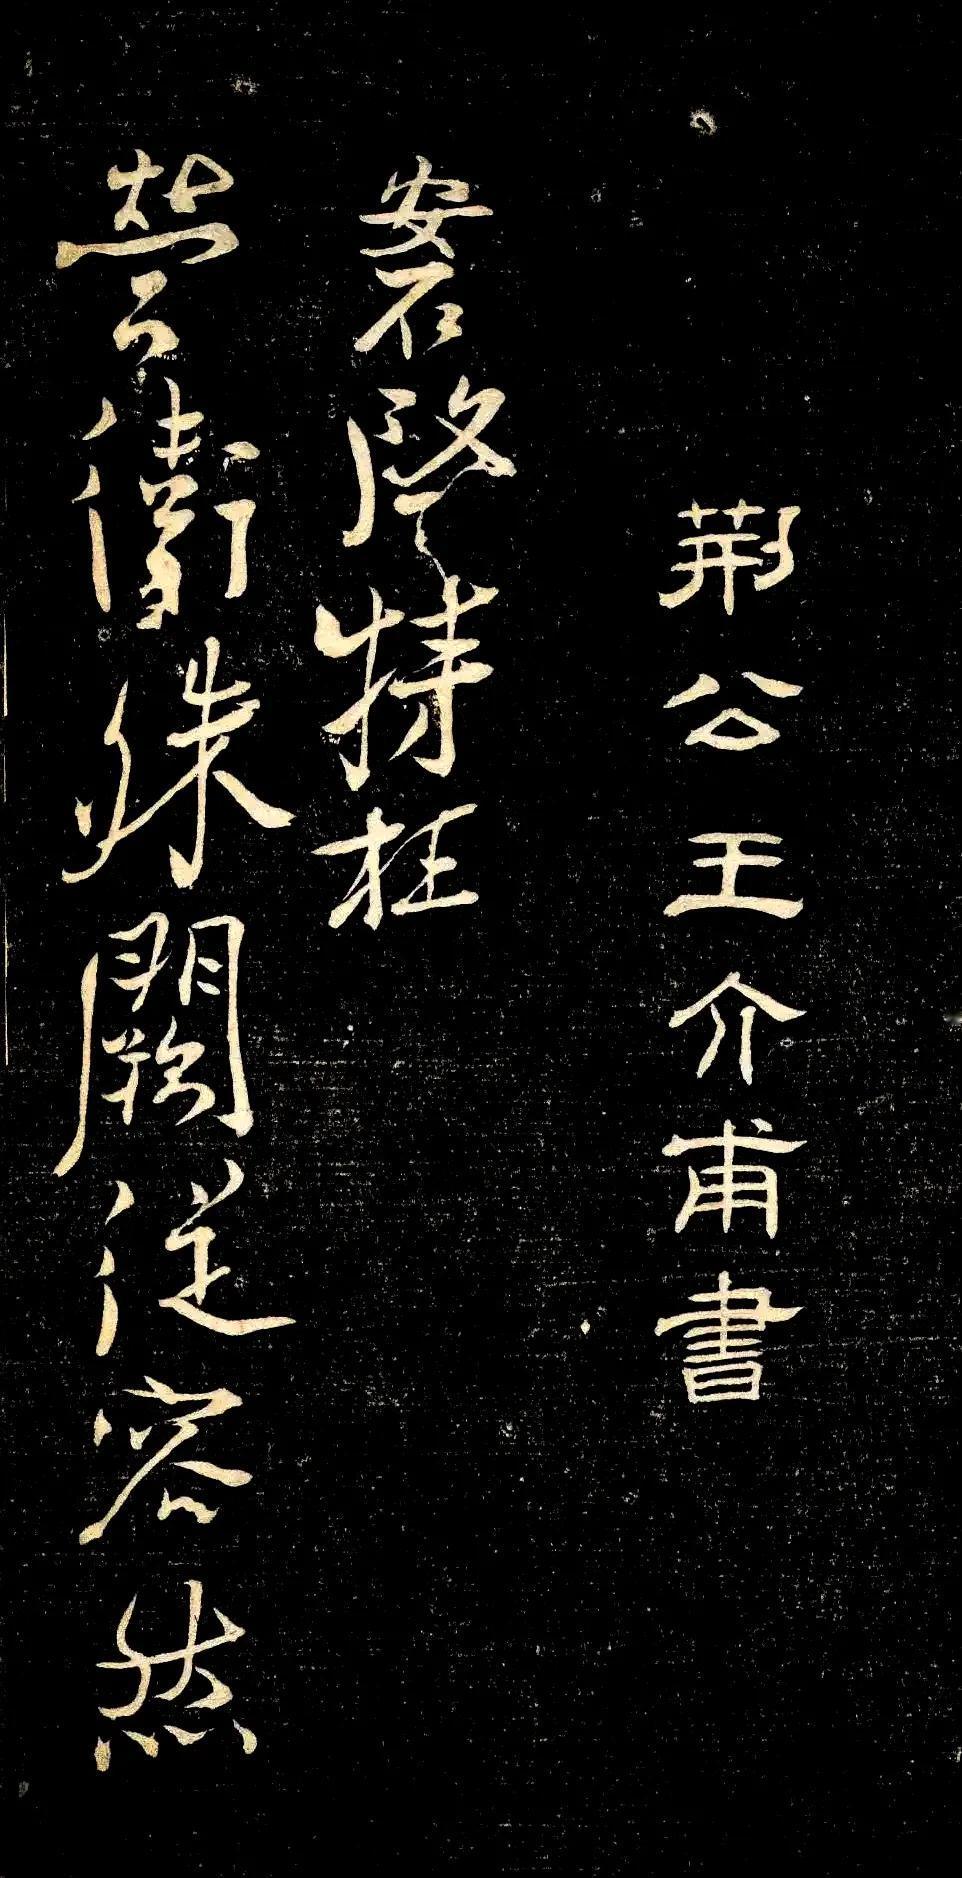 荆公王介甫書
安石啓特枉
營衛殊闕從容然